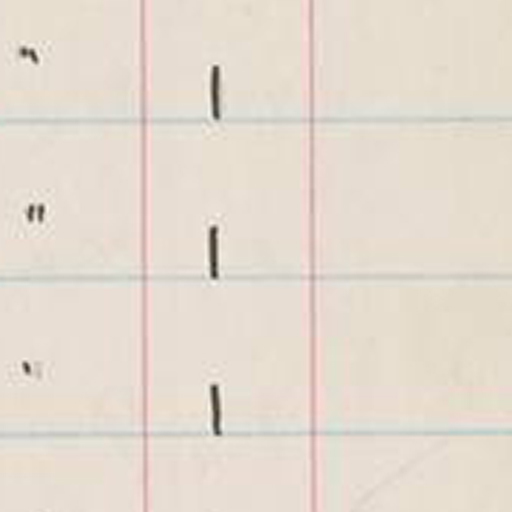 " 1
" 1
" 1